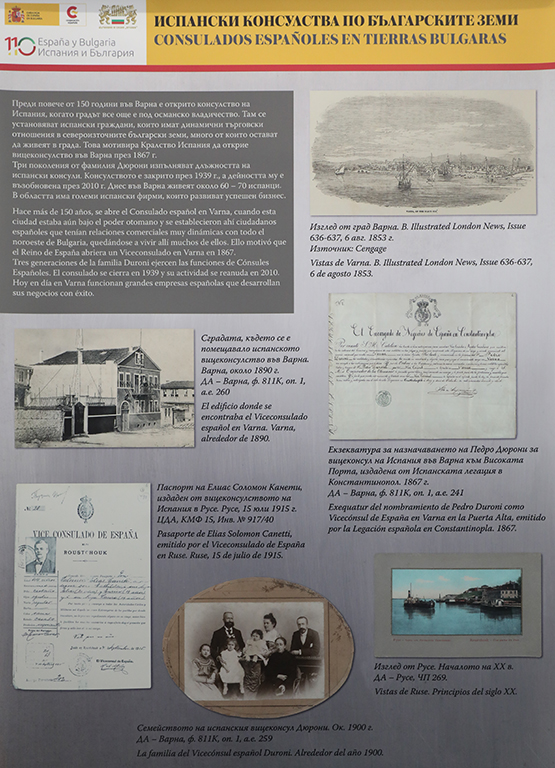 ИСПАНСКИ КОНСУЛСТВА ПО БЪЛГАРСКИТЕ ЗЕМИ
CONSULADOS ESPAÑOLES EN TIERRAS BULGARAS
110 España y Bulgaria
Испания и България
Преди повече от 150 години във Варна е открито консулство на
Испания, когато градът все още е под османско владичество. Там се
установяват испански граждани, които имат динамични търговски
отношения в североизточните български земи, много от които остават
да живеят в града. Това мотивира Кралство Испания да открие
вицеконсулство във Варна през 1867 г.
Три поколения от фамилия Дюрони изпълняват длъжността на
испански консули. Консулството е закрито през 1939 г., а дейността му е
възобновена през 2010 г. Днес във Варна живеят около 60 – 70 испанци.
В областта има големи испански фирми, които развиват успешен бизнес.
Hace más de 150 años, se abre el Consulado español en Varna, cuando esta
ciudad estaba aún bajo el poder otomano y se establecieron ahí ciudadanos
españoles que tenían relaciones comerciales muy dinámicas con todo el
noroeste de Bulgaria, quedándose a vivir allí muchos de ellos. Ello motivó que
el Reino de España abriera un Viceconsulado en Varna en 1867.
Tres generaciones de la familia Duroni ejercen las funciones de Cónsules
Españoles. El consulado se cierra en 1939 y su actividad se reanuda en 2010.
Hoy en día en Varna funcionan grandes empresas españolas que desarrollan
sus negocios con éxito.
Изглед от град Варна. B. Illustrated London News, Issue
636-637, 6 авг. 1853 г.
Източник: Cengage
Vistas de Varna. B. Illustrated London News, Issue 636-637,
6 de agosto 1853.
Сградата, където се е
помещавало испанското
вицеконсулство във Варна.
Варна, около 1890 г.
ДА – Варна, ф. 811К, оп. 1,
а.е. 260
El edificio donde se
encontraba el Viceconsulado
español en Varna. Varna,
alrededor de 1890.
El Encargado de Negocios de España en Constantinopla,
Екзекватура за назначаването на Педро Дюрони за
вицеконсул на Испания във Варна към Високата
Порта, издадена от Испанската легация в
Константинопол. 1867 г.
ДА – Варна, ф. 811К, оп. 1, а.е. 241
Exequatur del nombramiento de Pedro Duroni como
Vicecónsul de España en Varna en la Puerta Alta, emitido
por la Legación española en Constantinopla. 1867.
VICE CONSULADO DE ESPAÑA
ROUSTCHOUK
Паспорт на Елиас Соломон Канети,
издаден от вицеконсулството на
Испания в Русе. Русе, 15 юли 1915 г.
ЦДА, КМФ 15, Инв. № 917/40
Pasaporte de Elias Solomon Canetti,
emitido por el Viceconsulado de España
en Ruse. Ruse, 15 de julio de 1915.
Изглед от Русе. Началото на XX в.
ДА – Русе, ЧП 269.
Vistas de Ruse. Principios del siglo XX.
Семейството на испанския вицеконсул Дюрони. Ок. 1900 г.
ДА – Варна, ф. 811К, оп. 1, а.е. 259
La familia del Vicecónsul español Duroni. Alrededor del año 1900.